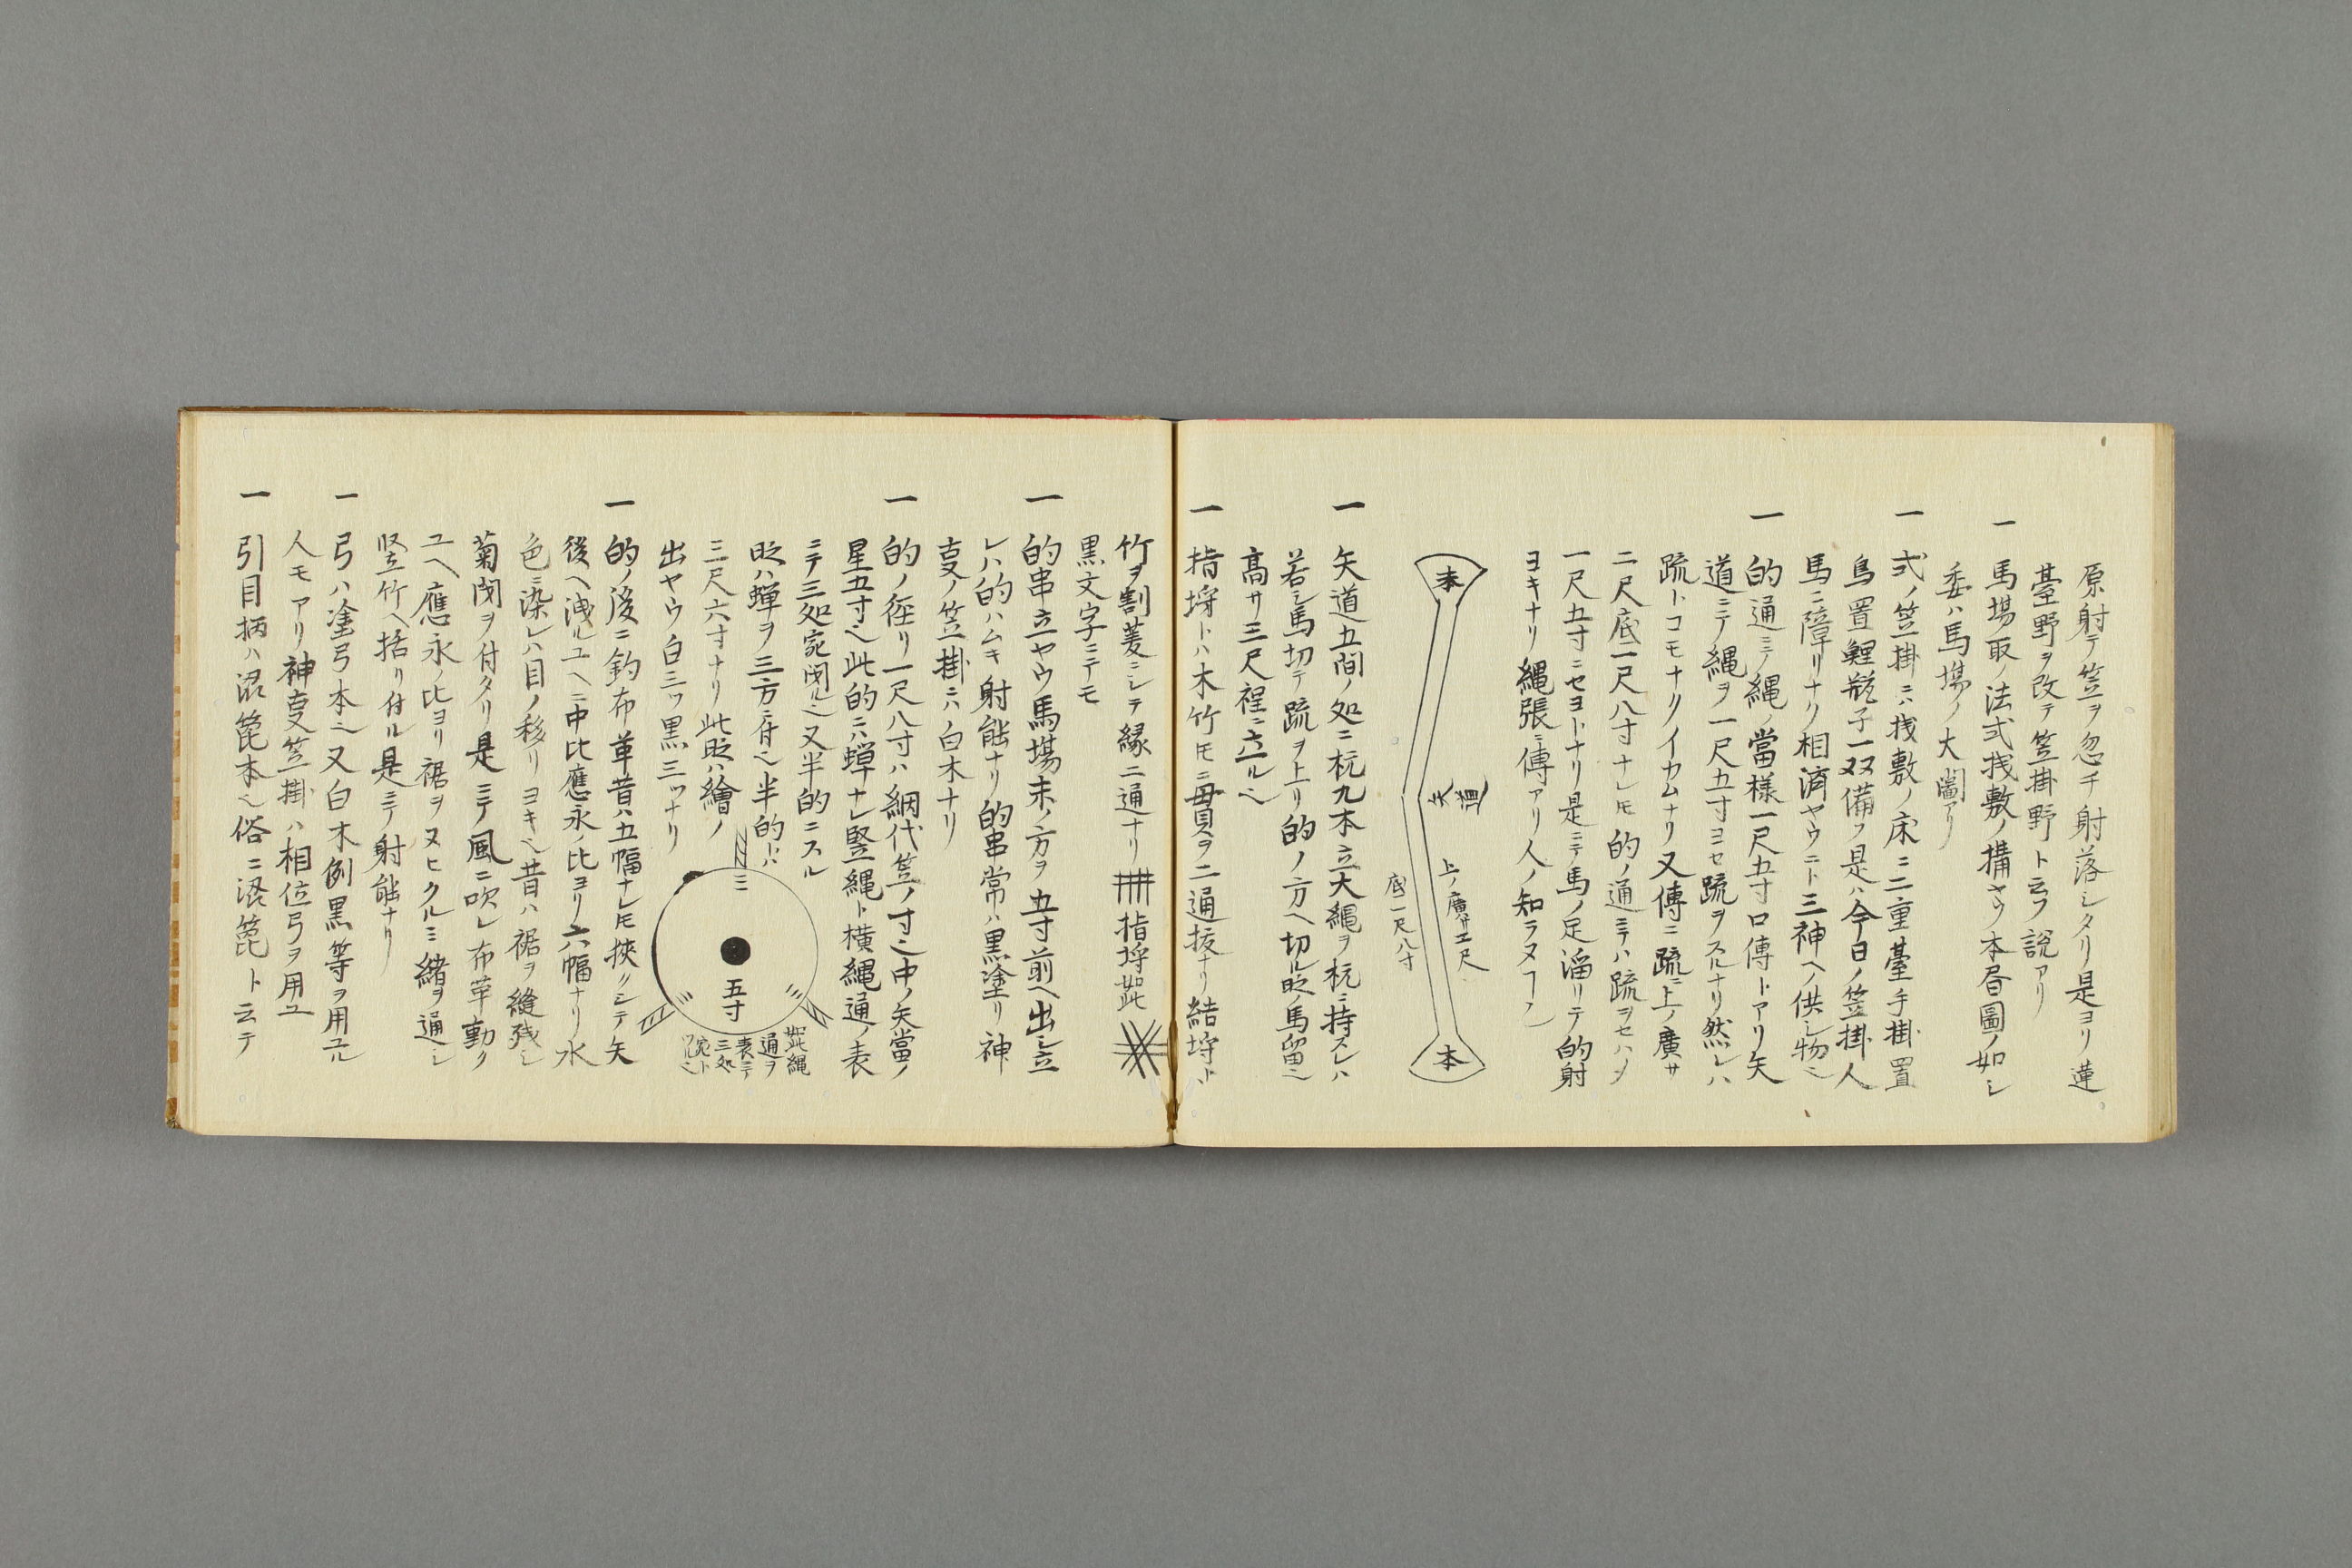 原射テ笠ヲ忽チ射落シタリ是ヨリ蓮
臺野ヲ改テ笠掛野ト云フ説アリ
一 馬場取ノ法式桟敷ノ搆ヤウ本昼圖ノ如シ
委ハ馬場ノ大圖アリ
一 弍ノ笠掛ニハ桟敷ノ床ニ二重臺手掛置
鳥置鯉瓶子一双備フ是ハ今日ノ笠掛人
馬ニ障リナク相済ヤウニト三神ヘノ供シ物也
一 的通ニテ縄ノ當様一尺五寸口傳トアリ矢
道ニテ縄ヲ一尺五寸ヨセ疏ヲスルナリ然レハ
疏トコモナクイカムナリ又傳ニ疏ニ上ノ廣サ
二尺底一尺八寸ナレ𪜈的ノ通ニテハ疏ヲセハメ
一尺五寸ニセヨトナリ是ニテ馬ノ足溜リテ的射
ヨキナリ縄張ニ傳アリ人ノ知ラヌヿ也
本
矢道
上ノ廣サ二尺
底一尺八寸
本
一 矢道五間ノ処ニ杭九本立大縄ヲ杭ニ持スレハ
若シ馬切テ疏ヲ上リ的ノ方ヘ切ル時ノ馬留也
高サ三尺程ニ立ル也
一 指埒トハ木竹𪜈ニ毋貫ヲ二通抜ナリ結埒ト
竹ヲ割菱ニシテ縁二通ナリ 指埒如此
黒文字ニテモ
一 的串立ヤウ馬場末ノ方ヲ五寸前ヘ出シ立
レハ的ハムキ射能ナリ的串常ハ黒塗リ神
事ノ笠掛ニハ白木ナリ
一 的ノ径リ一尺八寸ハ綱代笠ノ寸也中ノ矢當ノ
星五寸也此的ニハ蝉ナレ竪縄ト横縄通ノ表
ニテ三処宛閉ル也又半的ニスル
時ハ蝉ヲ三方ニ付也半的トハ
三尺六寸ナリ此時ハ繪ノ
出ヤウ白三ツ黒三ツナリ
五寸
如此縄
通ヲ
表ニテ
三処
宛ト
ツル也
一 的ノ後ニ釣布革昔ハ五幅ナレ𪜈挾クシテ矢
後ヘ洩ルユヘニ中比應永ノ比ヨリ六幅ナリ水
色ニ染レハ目ノ移リヨキ也昔ハ裾ヲ縫残シ
菊閉ヲ付タリ是ニテ風ニ吹レ布革動ク
ユヘ應永ノ比ヨリ裾ヲヌヒクルミ緒ヲ通シ
竪竹ヘ括リ付ル是ニテ射能ナリ
一 弓ハ塗弓本也又白木例黒等ヲ用ユル
人モアリ神事笠掛ハ相位弓ヲ用ユ
一 引目柄ハ沼箆本也俗ニ濃箆ト云テ